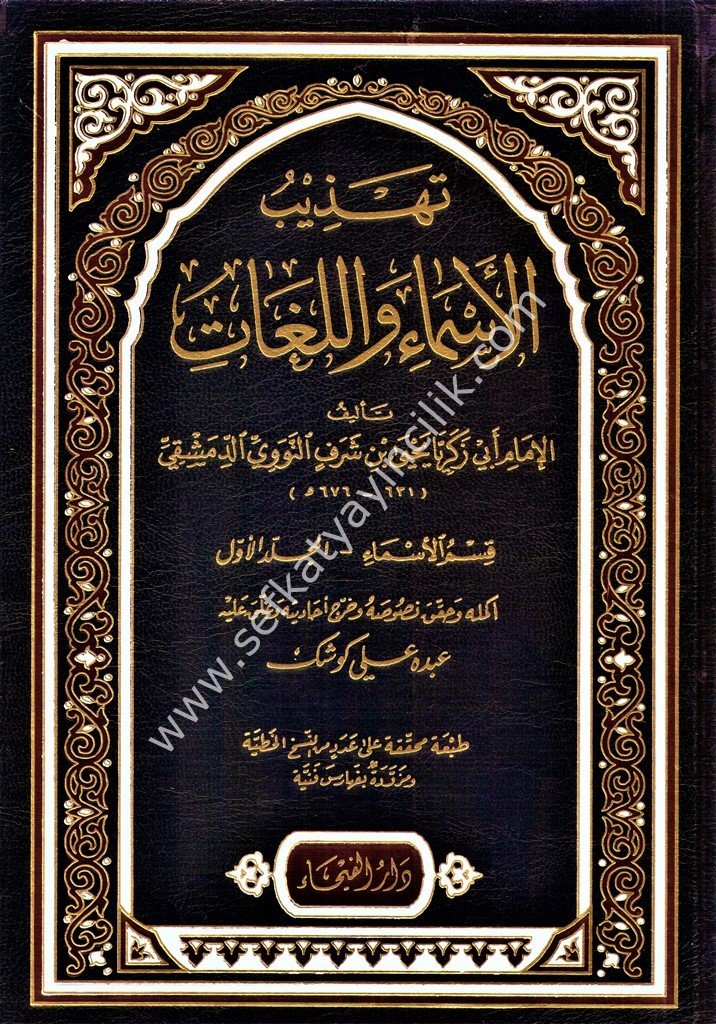 تهذيب
الأسماء واللغات
تأليف
الإمام أبي زكريا يحيى بن شرف النووي الدمشقي
(٦٣١ - ٦٧٦ ه)
قسم الأسماء - المجلد الأول
أكمله وحقق نصوصه وخرج أحاديثه وعلق عليه
عبده علي كوشك
طبعة محققة على عدد من النسخ الخطية
ومزودة بفهارس فنية
دار الفيحاء
www.sefkatyayincilik.com